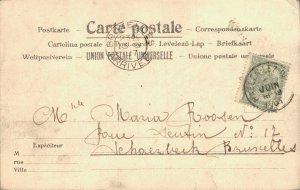 Postkarte Carte postale Correspondenzkarte
Cartolina postale Levelező-Lap - Briefkaart
Weltpostverein - UNION POSTALE UNIVERSELLE - Unione postale universale
JUIN
Mlle Maria Roosen
Rue Seutin No 12
Expéditeur
Schaerbeek Bruxelles
M
rue
Ville